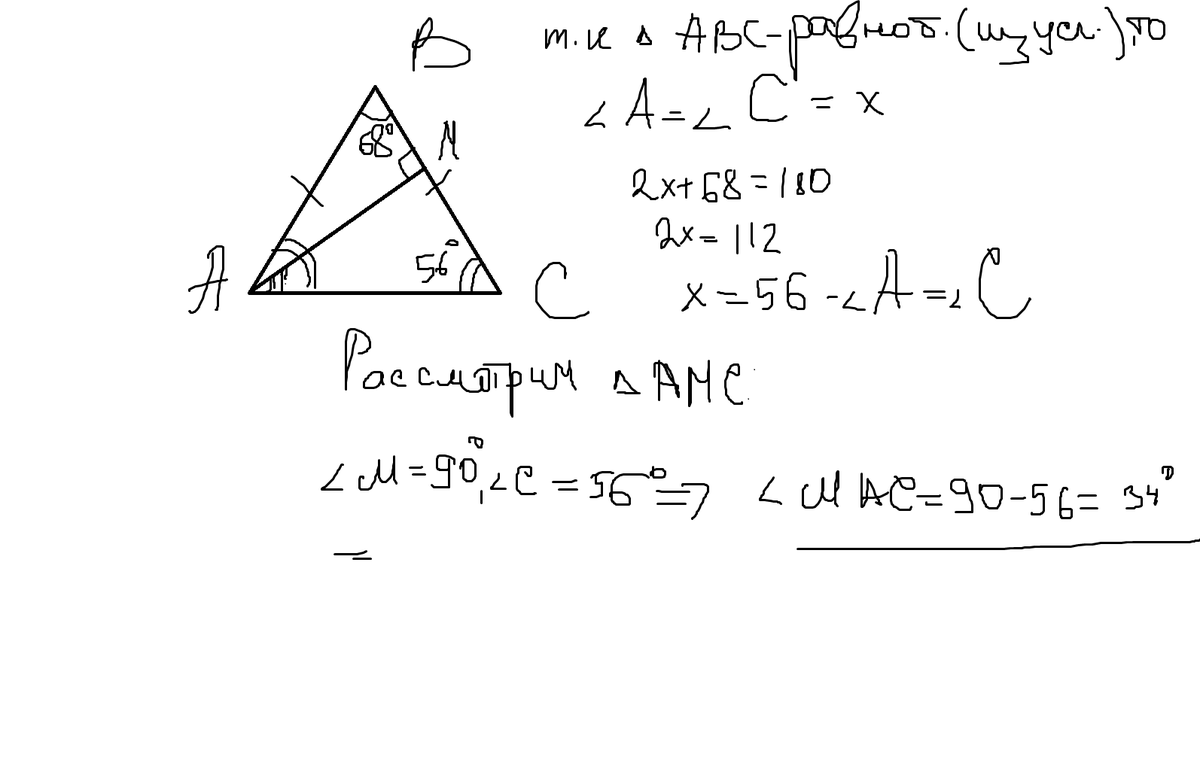 В т.к △ ABC-равноб.(из усл.),то
68° М ∠ A = ∠ C = x
2x+68=180
2x=112
А 56° C x=56 -∠A=∠C
Рассмотрим △ АМС
∠M=90°,∠C=56°=> ∠MAC=90-56=34°
=